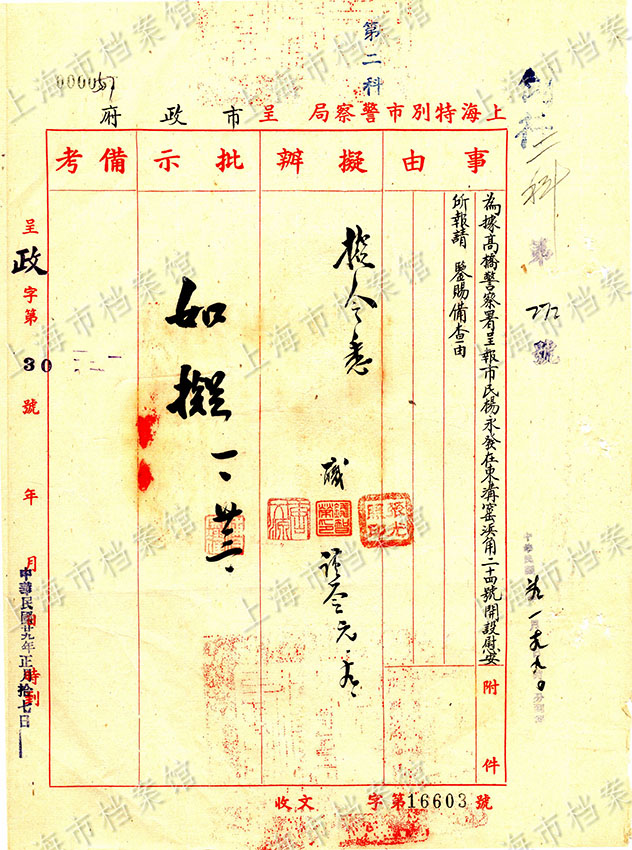 第二科
000057
上海特別市警察局 呈 市政府
事由
為據高橋警察署呈報市民楊永發在東溝窰浜角二十四號開設慰安
所報請 鑒賜備查由
附件
擬辦
擬令悉
職
批示
如擬
備考
呈政字第30號 年 月 日 時到
中華民國廿九年正月拾七日
第 272 號
收文 字第16603號
上海市档案馆